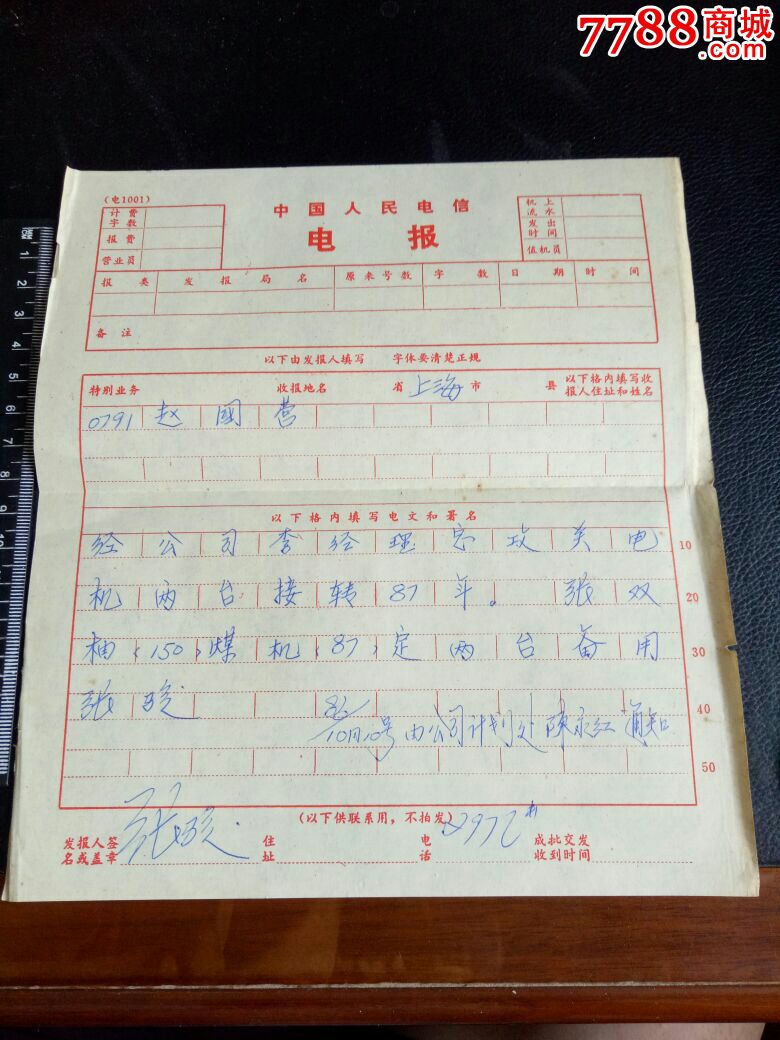 7788商城
.com
(电1001)
中国人民电信
电报
计费字数
报费
营业员
机上流水
发出时间
值机员
报类 发报局名 原来号数 字数 日期 时间
备注
以下由发报人填写 字体要清楚正规
特别业务 收报地名 省 上海 市 县 以下格内填写收报人住址和姓名
0791 赵 國 营
以下格内填写电文和署名
经公司李经理 攻关电 10
机两台接转87年。 张双 20
柚(150)煤机(87)定两台备用 30
张 86/10月10号由公司计划处陈永红通知 40
50
(以下供联系用,不拍发)
发报人签名或盖章 张 住址 电话 成批交发收到时间